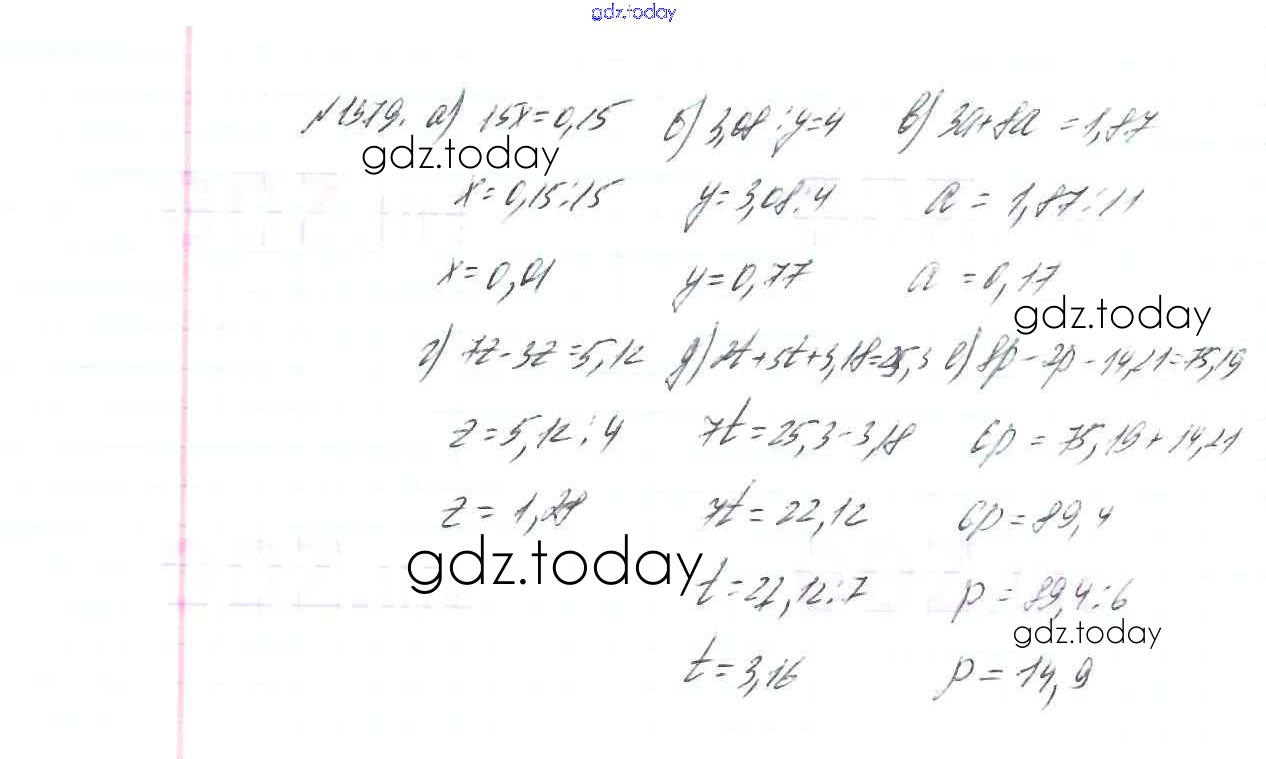 gdz.today
№1379. а) 15x=0,15 б) 3,08:y=4 в) 3a+8a =1,87
gdz.today
x=0,15:15 y=3,08:4 a = 1,87:11
x=0,01 y=0,77 a =0,17
gdz.today
г) 7z-3z=5,12 д) 2t+5t+3,18=25,3 е) 8p-2p-14,21=75,19
z=5,12:4 7t=25,3-3,18 6p = 75,19+14,21
z = 1,28 7t=22,12 6p=89,4
gdz.today
t=22,12:7 p = 89,4:6
gdz.today
t=3,16 p=14,9